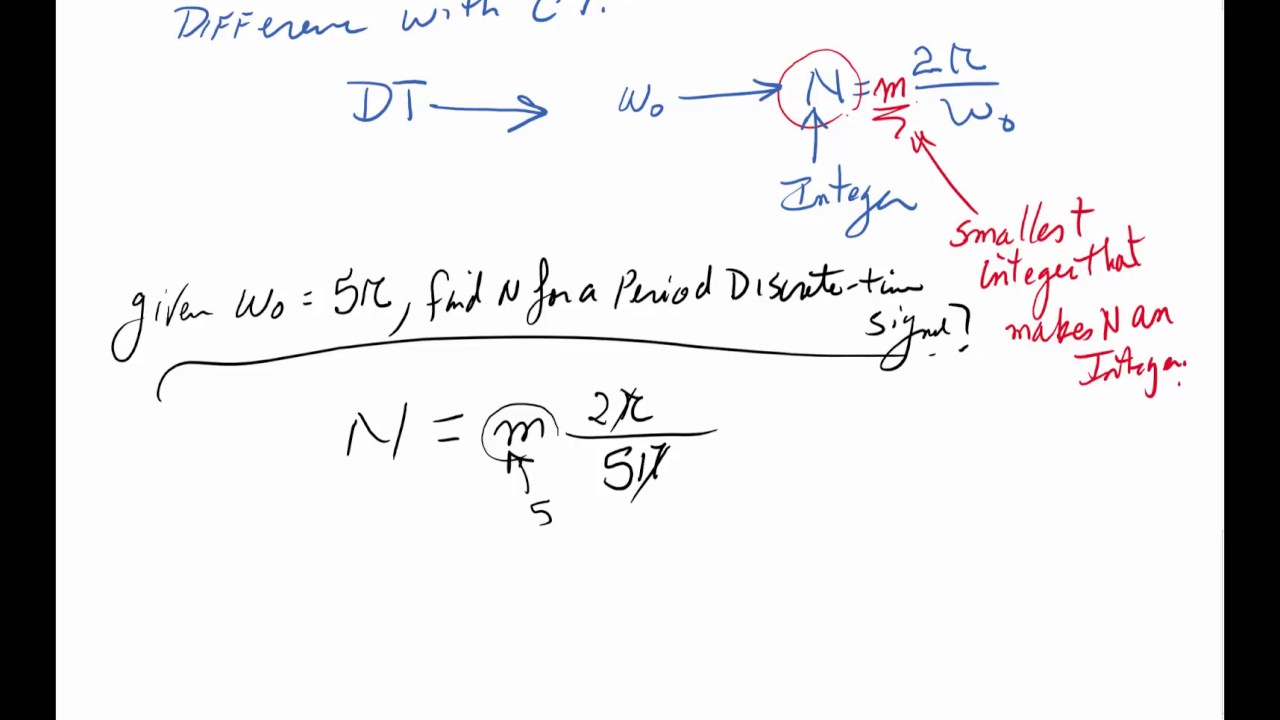 Difference with CT.
DT → ω₀ → N = m 2π/ω₀
Integer
smallest
integer that
makes N an
Integer.
given ω₀ = 5π, find N for a Period Discrete-time
signal?
N = m 2π/5π
5